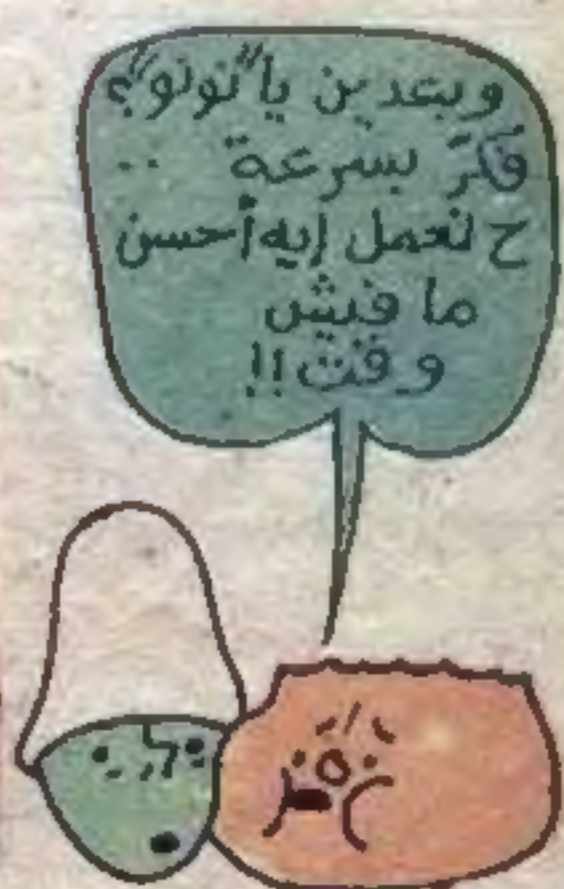 وبعدين يا "نونو"؟
فكّر بسرعة ..
ح نعمل إيه أحسن
ما فيش
وقت!!